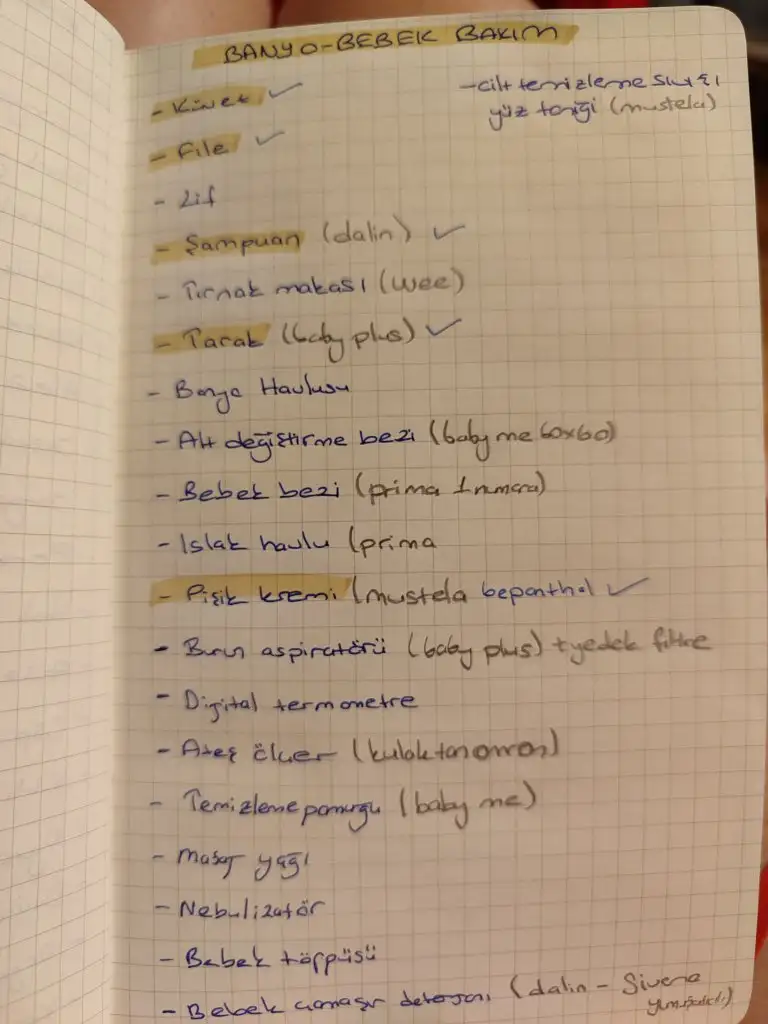 BANYO-BEBEK BAKIM
- Küvet ✓
- File ✓
- Lif
- Şampuan (dalin) ✓
- Tırnak makası (wee)
- Tarak (baby plus) ✓
- Banyo Havlusu
- Alt değiştirme bezi (baby me 60x60)
- Bebek bezi (prima 1 numara)
- Islak havlu (prima
- Pişik kremi (mustela bepanthol ✓
- Burun aspiratörü (baby plus) + yedek filtre
- Digital termometre
- Ateş ölçer (kulaktan omron)
- Temizleme pamuğu (baby me)
- Masaj yağı
- Nebulizatör
- Bebek törpüsü
- Bebek çamaşır deterjanı (dalin - Siveno
yumuşatıcılı)
- cilt temizleme sıvısı
yüz (mustela)